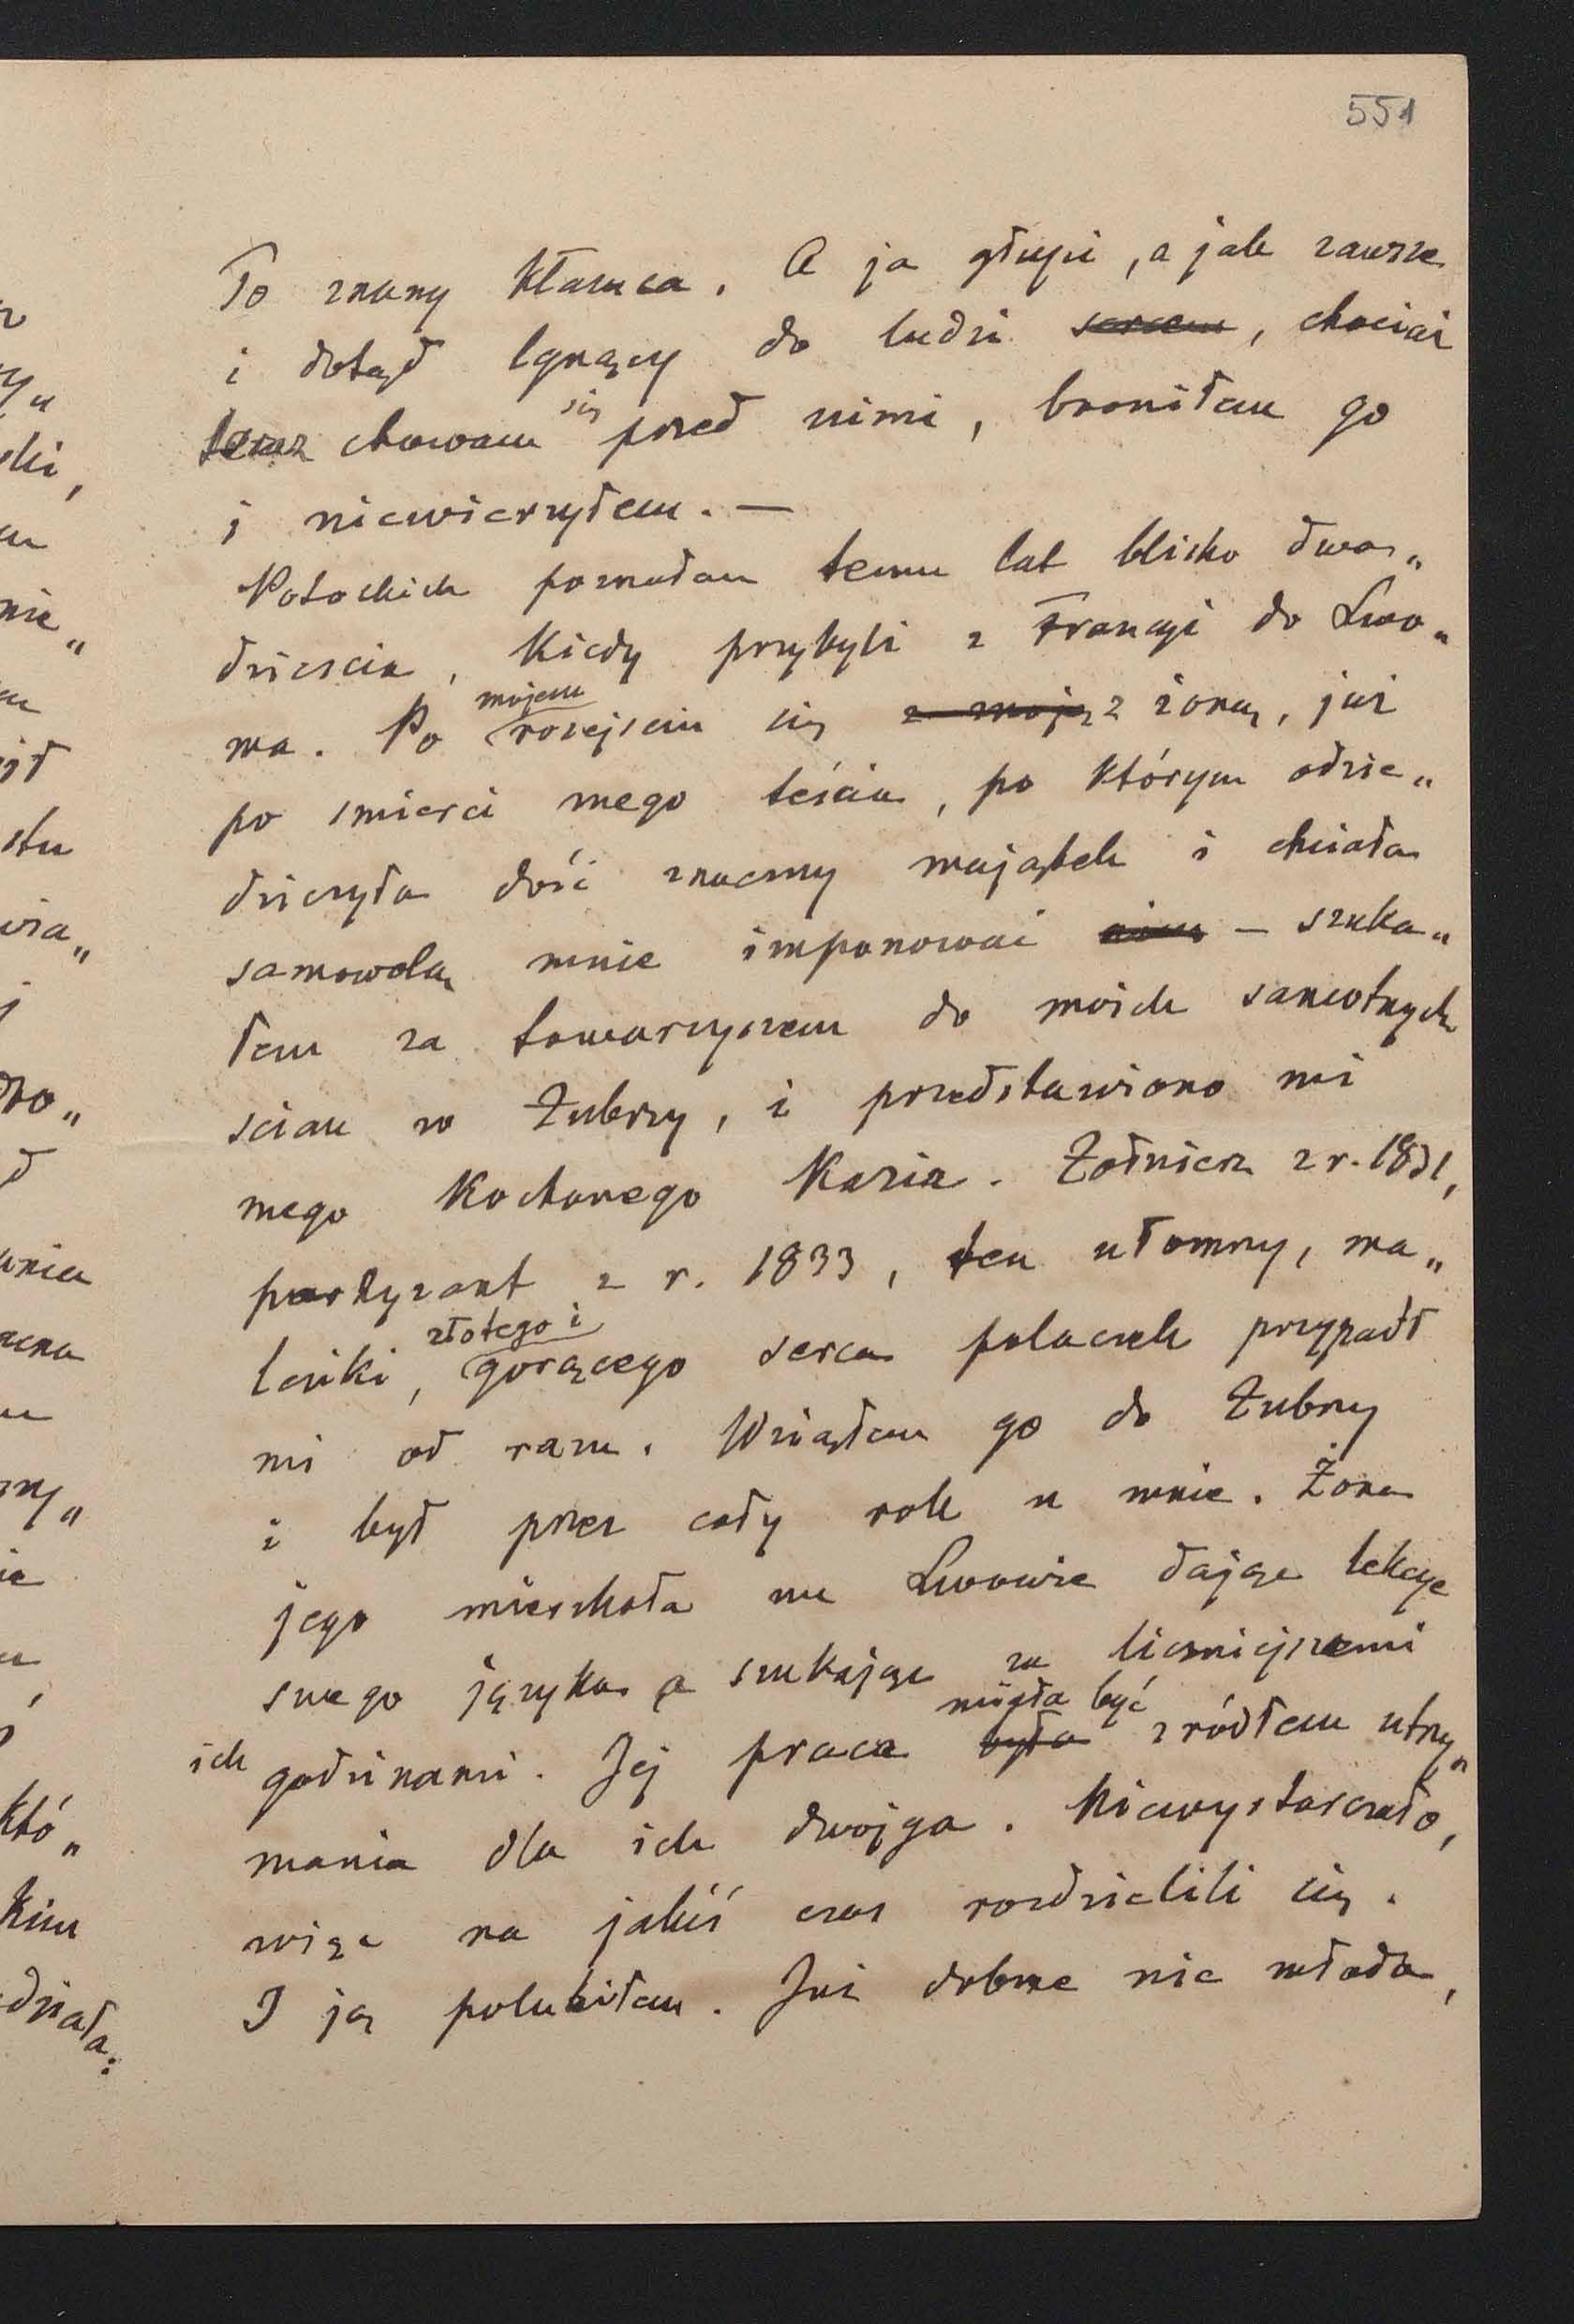 551
To znany kłamca. A ja głupi, a jak zawsze
i dotąd lgnący do ludzi sercem, chociaż
teraz chowam się przed nimi, broniłem go
i niewierzyłem. —
Potockich poznałem temu lat blisko dwa„
dziescia, kiedy przybyli z Francyi do Lwo„
wa. Po mojem rozejsciu się z moją z żoną, już
po smierci mego teścia, po którym odzie„
dziczyła dość znaczny majątek i chciała
samowolą mnie imponować nim — szuka„
łem za towarzyszem do moich samotnych
scian w Żubrzy, i przedstawiono mi
mego kochanego Kazia. Żołnierz z r. 1831,
partyzant z r. 1833, ten ułomny, ma„
leńki, złotego i gorącego serca polaczek przypadł
mi od razu. Wziąłem go do Żubrzy
i był przez cały rok u mnie. Żona
jego mieszkała we Lwowie dając lekcye
swego języka a szukając za liczniejszemi
ich godzinami. Jej praca była miała być zródłem utrzy„
mania dla ich dwojga. Niewystarczało,
więc na jakiś czas rozdzielili się.
I ją polubiłem. Już dobrze nie młoda,